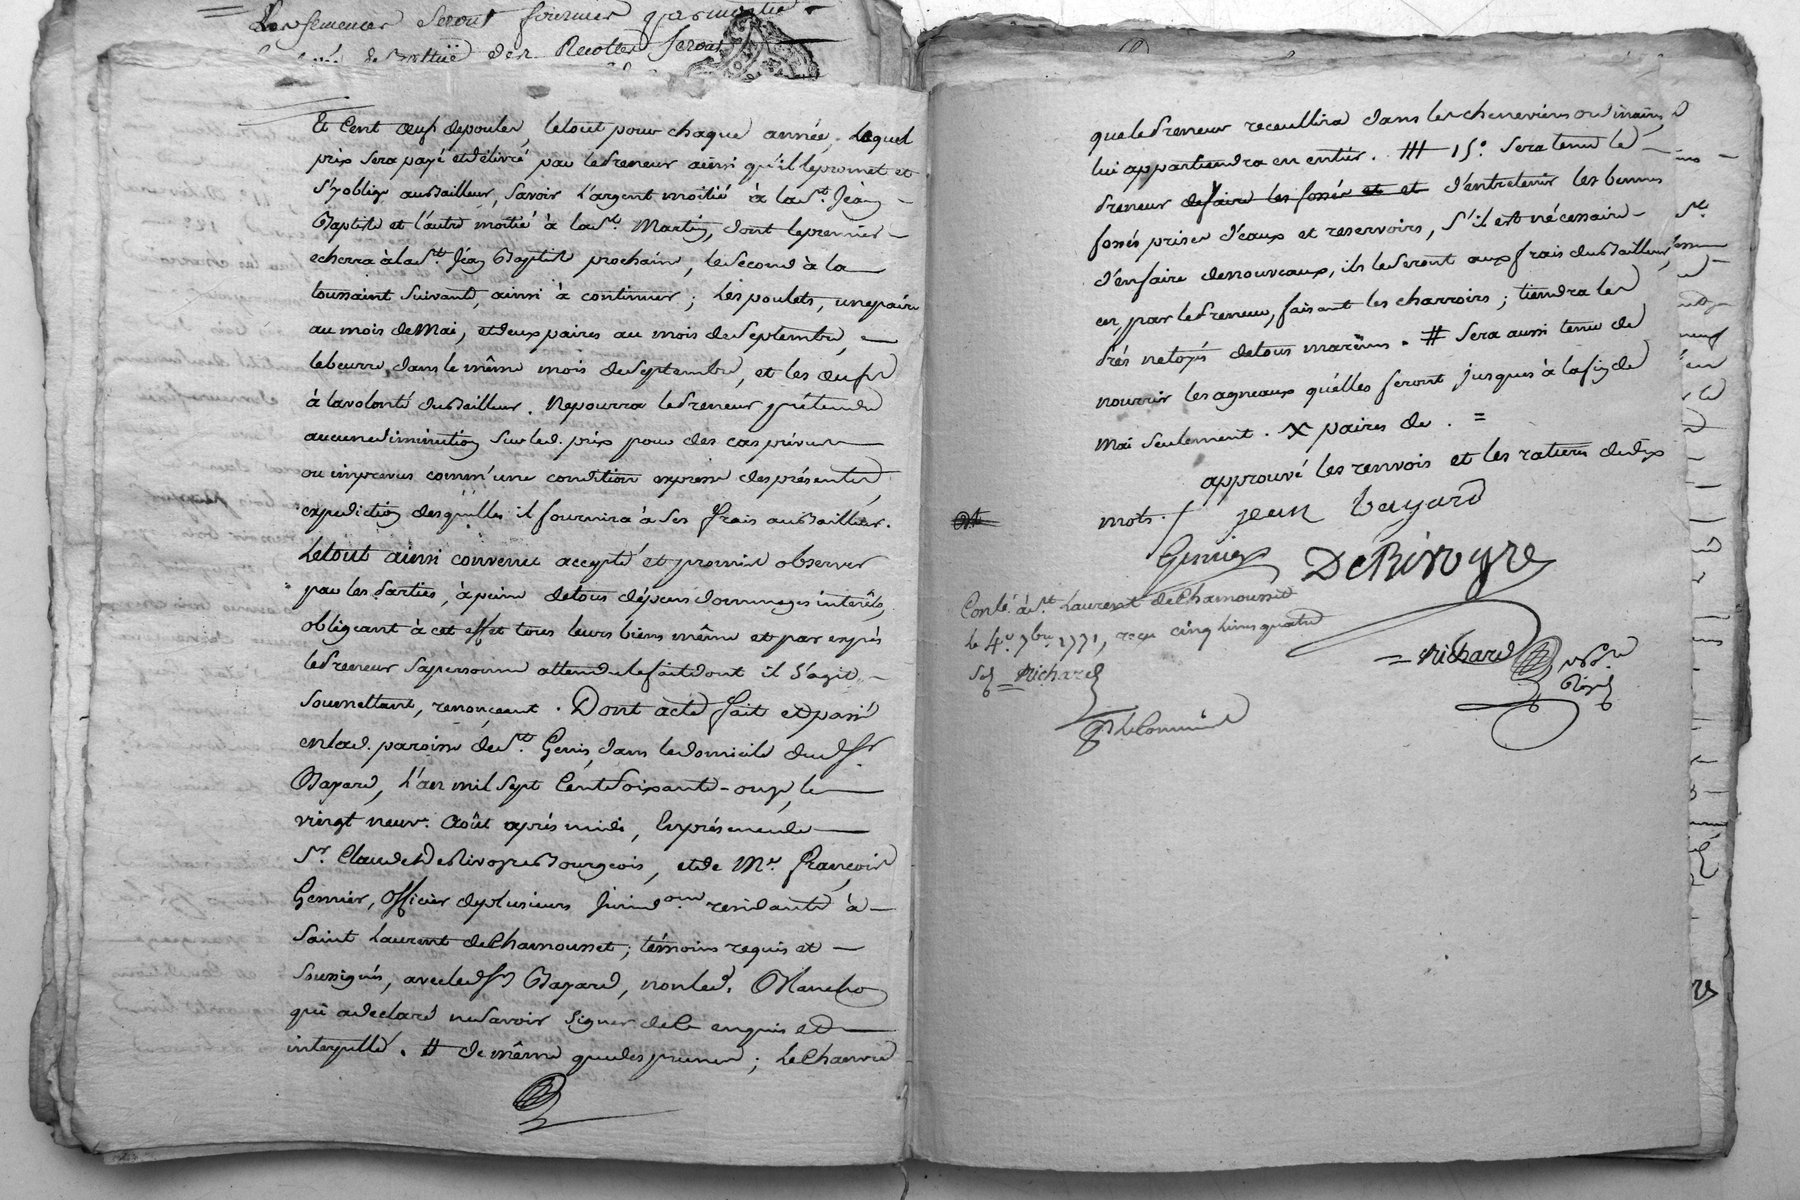 Les semences seront fournies par moitié
des Recoltes seront
Et Cent œufs de poules, le tout pour chaque année, Lequel
prix sera payé et délivré par le Preneur ainsi qu'il le promet et
s'y oblige au Bailleur, savoir L'argent moitié à la St. Jean
Baptiste et l'autre moitié à la St. Martin, dont le premier
echerra à la St. Jean Baptiste prochain, le second à la
toussaint suivante, ainsi à continuer ; Les poulets, une paire
au mois de Mai, et deux paires au mois de Septembre,
le beurre dans le même mois de Septembre, et les œufs
à la volonté du Bailleur. Ne pourra le Preneur prétendre
aucune diminution sur led. prix pour des cas prévus
ou imprevus comm'une condition expresse des présentes,
expedition desquelles il fournira à ses frais au Bailleur.
Le tout ainsi convenu accepté et promis observer
par les Parties, à peine de tous dépens dommages interêts,
obligeant à cet effet tous leurs biens même et par exprès
le Preneur sa personne attendu le fait dont il s'agit,
soumettant, renonceant. Dont acte fait et passé
en lad. paroisse de St. Genis, dans le domicile dud. Sr.
Bayard, L'an mil sept Cent Soixante-onze, le
vingt neuv. Août après midi, En présence de
Sr. Claude DeRivoyre Bourgeois, et de Mr. François
Gennier, Officier de plusieurs Juridons. residants à
Saint Laurent de Chamousset ; témoins requis et
soussignés, avec led. Sr. Bayard, non led.
qui a declaré ne savoir signer de ce enquis et
interpellé. # de même que les prunes ; Le Chanvre
que le Preneur recœuillira dans les cheneviers ordinaires,
lui appartiendra en entier. ### 15o. Sera tenu le
Preneur de faire les fossés et et d'entretenir les bonnes
fossés prises d'eaux et reservoirs, s'il est nécessaire
d'en faire de nouveaux, ils le seront aux frais du Bailleur,
et, par le Preneur, faisant les charrois ; tiendra les
Prés netoyés de tous # Sera aussi tenu de
nourrir les agneaux qu'elles feront jusques à la fin de
Mai seulement. X paires de. =
approuvé les renvois et les ratures de dix
mots. / jean bayard
Gennier DeRivoyre
Conlé. à St. Laurent de Chamousset
le 4e. 7bre. 1771, reçu cinq livres quatre
sols = Richard
= Richard